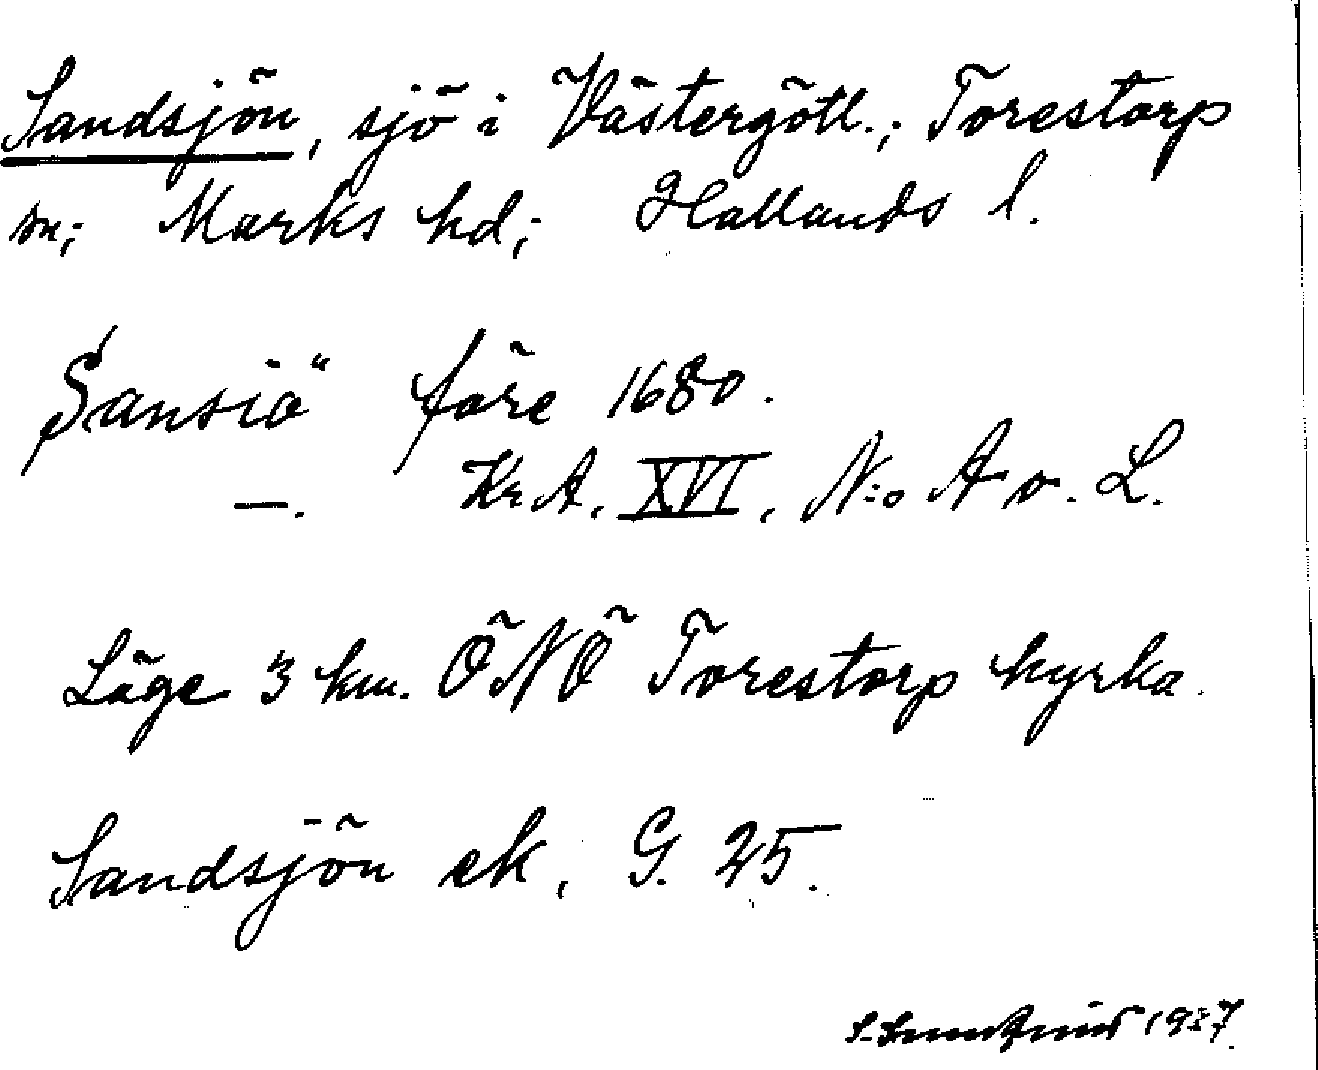 Sandsjön, sjö i Västergötl.; Torestorp
sn; Marks hd; Hallands l.
Sansiö före 1680.
—. Kr A, XVI, N:o A v. L.
Läge 3 km. ÖNÖ Torestorp kyrka.
Sandsjön ek, G. 25.
1937.